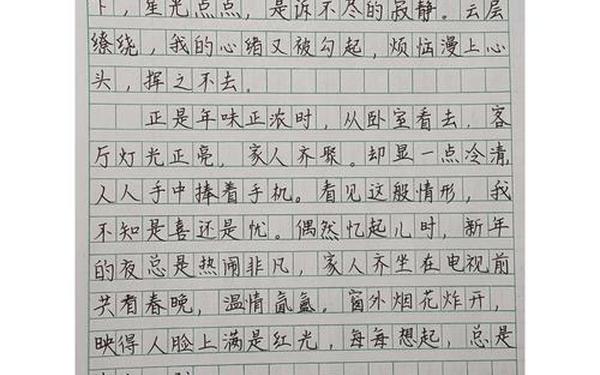 下，星光点点，是诉不尽的寂静。云层
缭绕，我的心绪又被勾起，烦恼漫上心
头，挥之不去。
正是年味正浓时，从卧室看去，客
厅灯光正亮，家人齐聚。却显一点冷清，
人人手中捧着手机。看见这般情形，我
不知是喜还是忧。偶然忆起儿时，新年
的夜总是热闹非凡，家人齐坐在电视前
共看春晚，温情氤氲。窗外烟花炸开，
映得人脸上满是红光，每每想起，总是